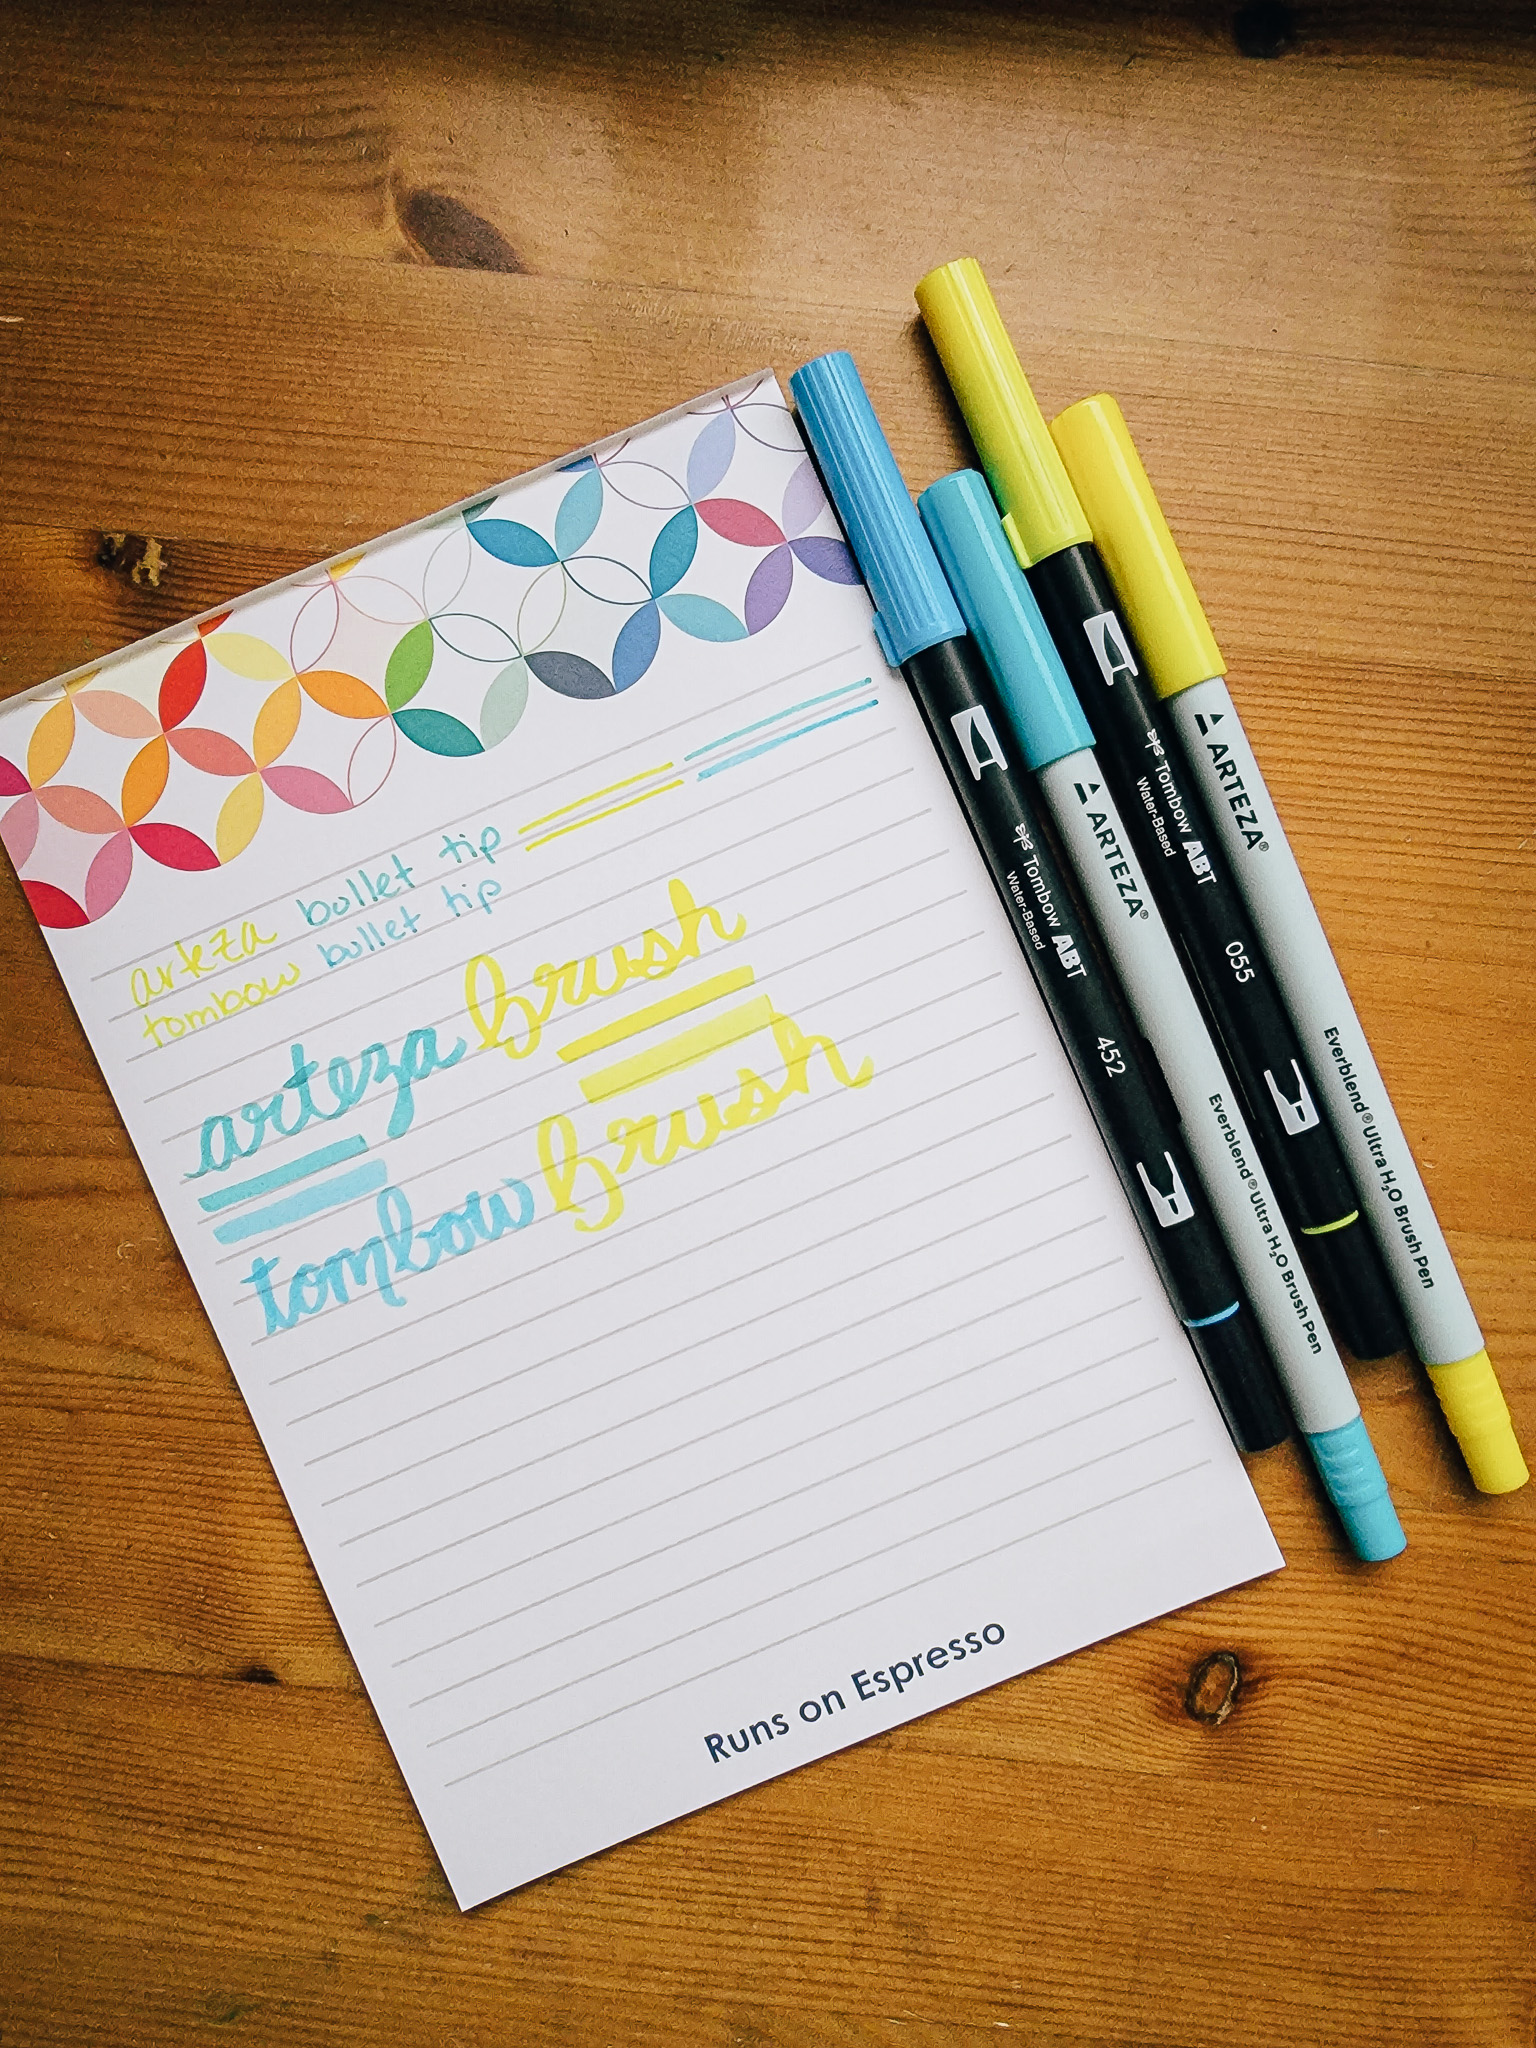 arteza bullet tip
tombow bullet tip
arteza brush
tombow brush
Runs on Espresso
Tombow ABT
Water-Based
452
ARTEZA®
Everblend® Ultra H₂O Brush Pen
Tombow ABT
Water-Based
055
ARTEZA®
Everblend® Ultra H₂O Brush Pen